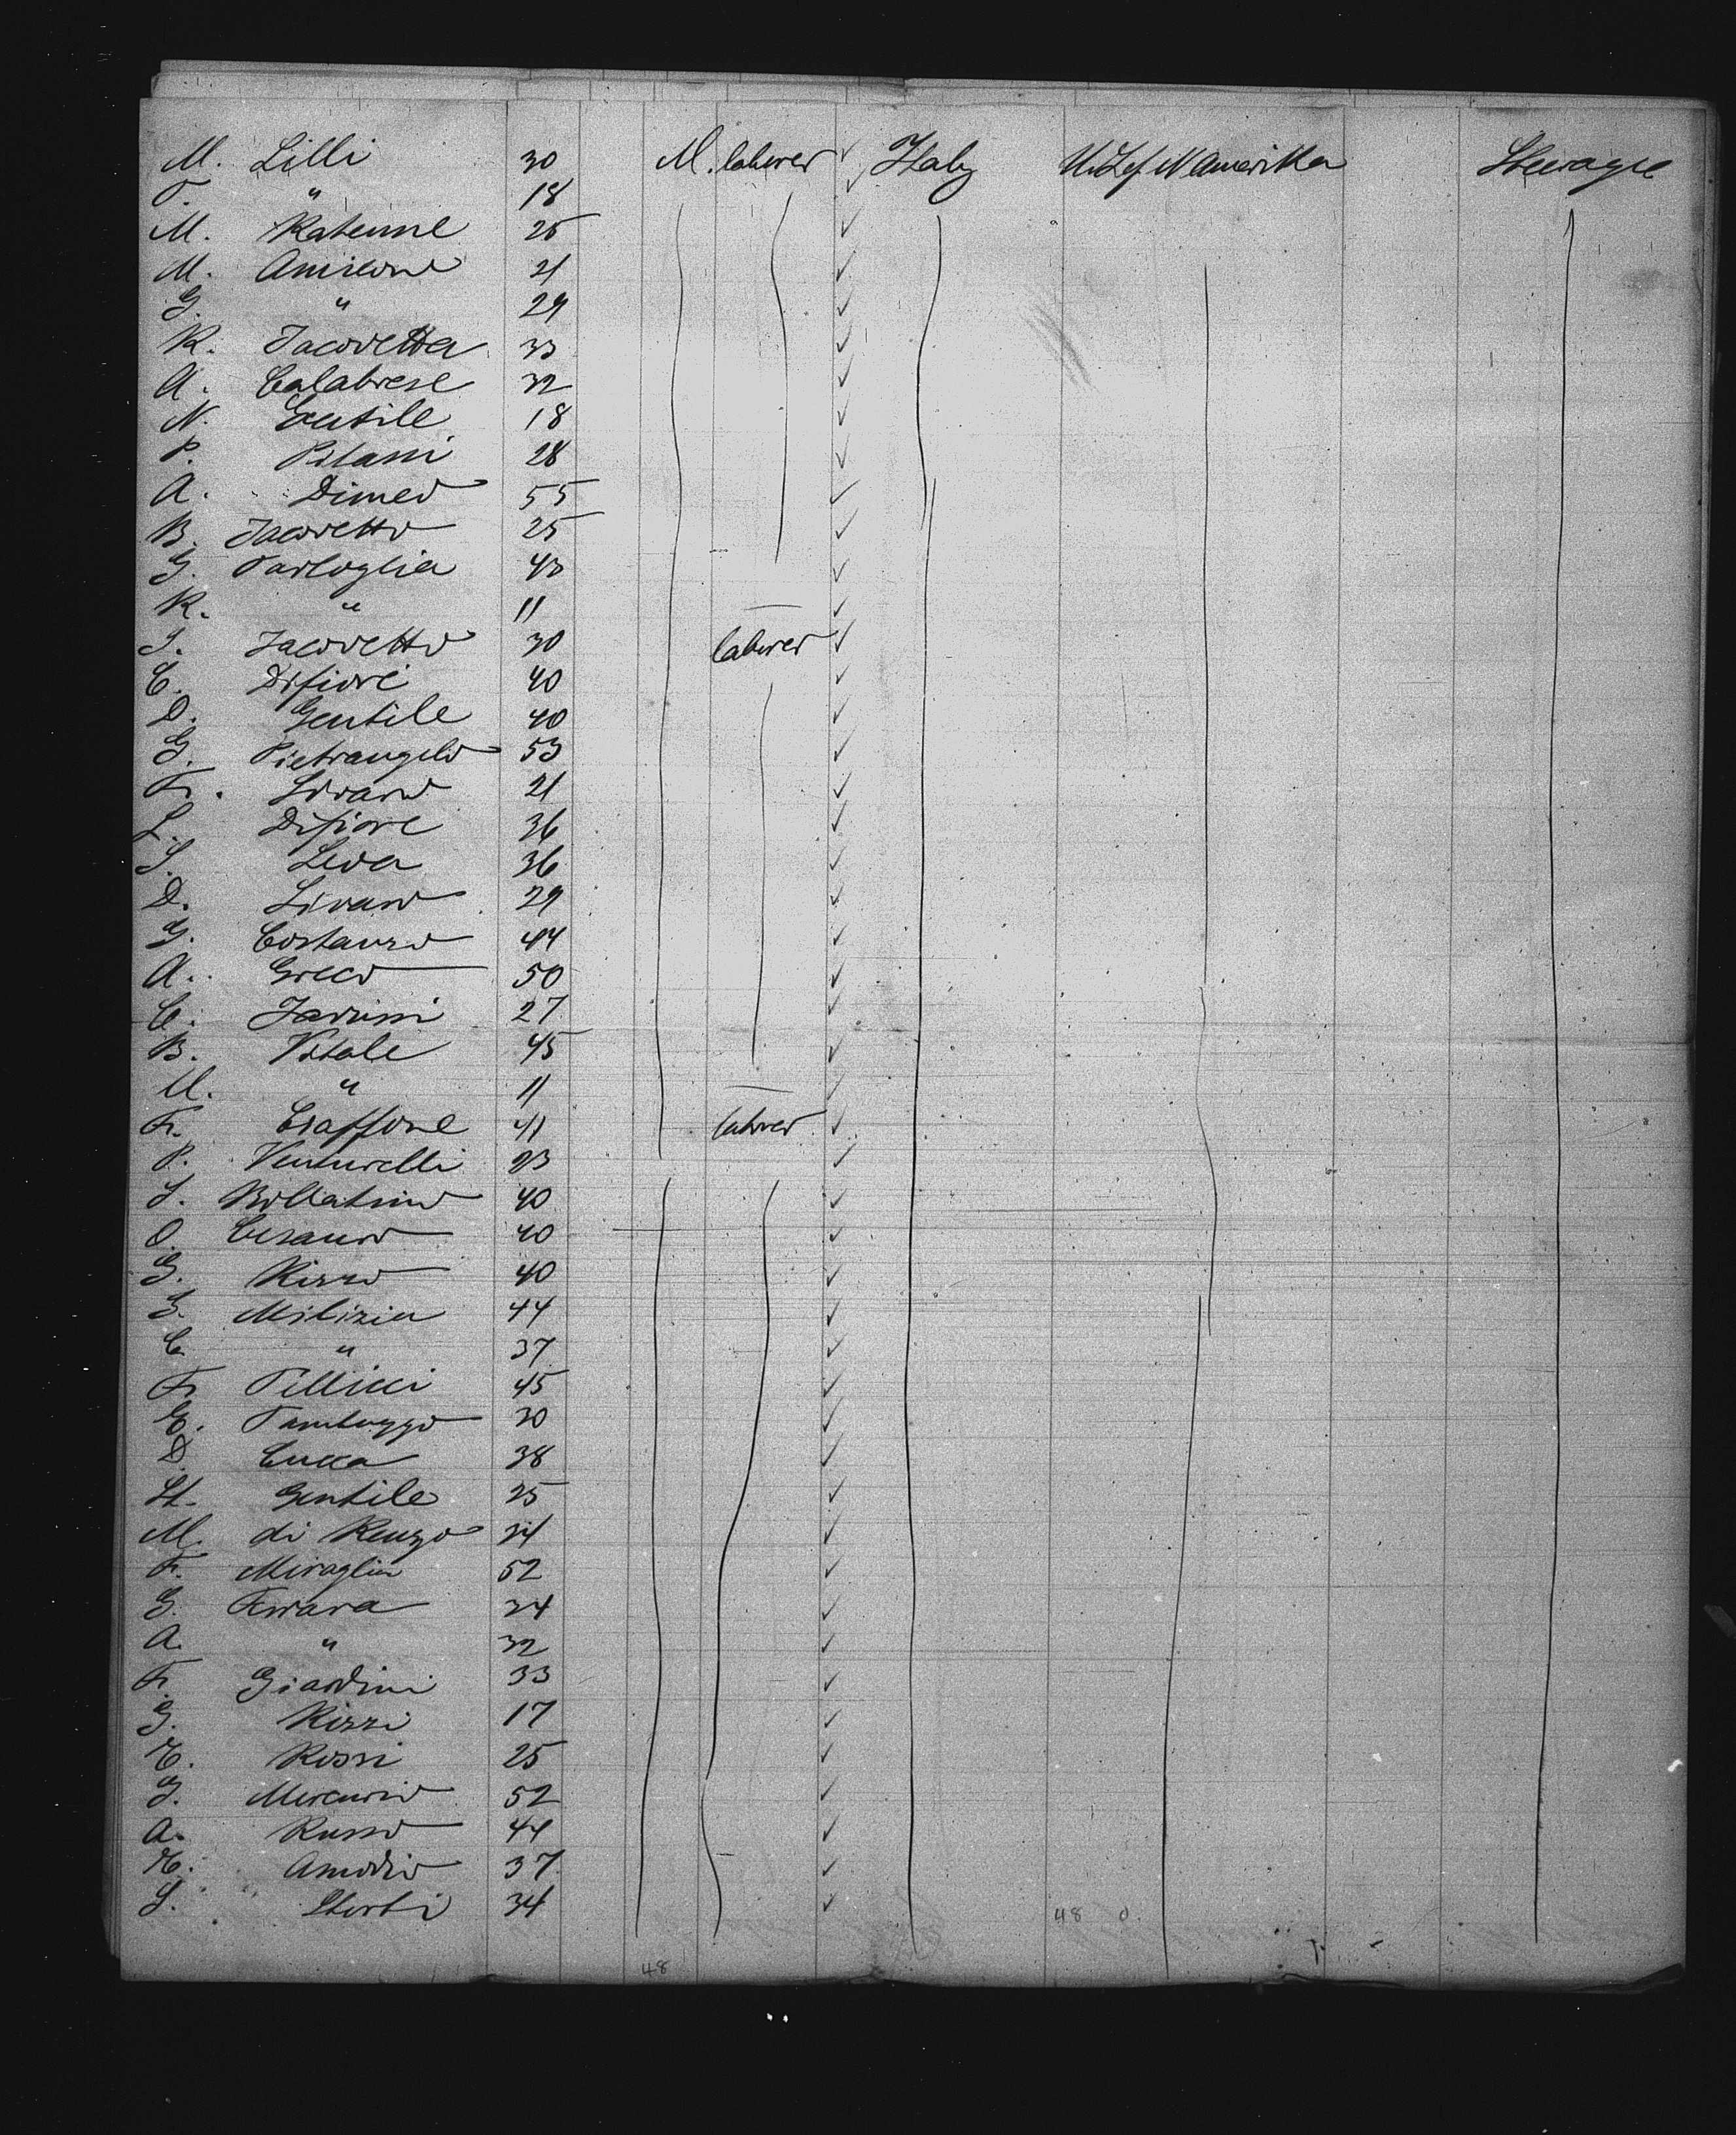 M. Lilli 30 M. laborer ✓ Italy U. St. of N Amerika Steerage
F. " 18 ✓
M. 25 ✓
M. Amicone 21 ✓
G. " 29 ✓
R. Jacovetta 33 ✓
A. Calabrese 32 ✓
N. Gentile 18 ✓
P. Pilani 28 ✓
A. Dimeo 55 ✓
B. Jacovetto 25 ✓
G. Tartoglia 43 ✓
R. " 11 — ✓
S. Jacovetto 30 laborer ✓
C. Difiore 40 ✓
D. Gentile 40 ✓
G. Pietrangelo 53 ✓
F. 21 ✓
L. Difiore 36 ✓
S. Leva 36 ✓
D. Livano 29 ✓
G. Costanzo 44 ✓
A. Greco 50 ✓
C. 27 ✓
B. Vitale 45 ✓
M. " 11 — ✓
F. Craffone 41 laborer ✓
P. Venturelli 23 ✓
S. 40 ✓
O. Cesano 40 ✓
G. Rizzo 40 ✓
G. Milizia 44 ✓
C. " 37 ✓
F. Pellicci 45 ✓
E. 30 ✓
D. Cucca 38 ✓
St. Gentile 25 ✓
M. di Renzo 34 ✓
F. Miraglia 52 ✓
G. 34 ✓
A. " 32 ✓
F. Giardini 33 ✓
G. Rizzi 17 ✓
E. Rossi 25 ✓
G. Mercurio 52 ✓
A. Russo 44 ✓
E. Amodio 37 ✓
S. Sterbi 34 ✓
48 0
48